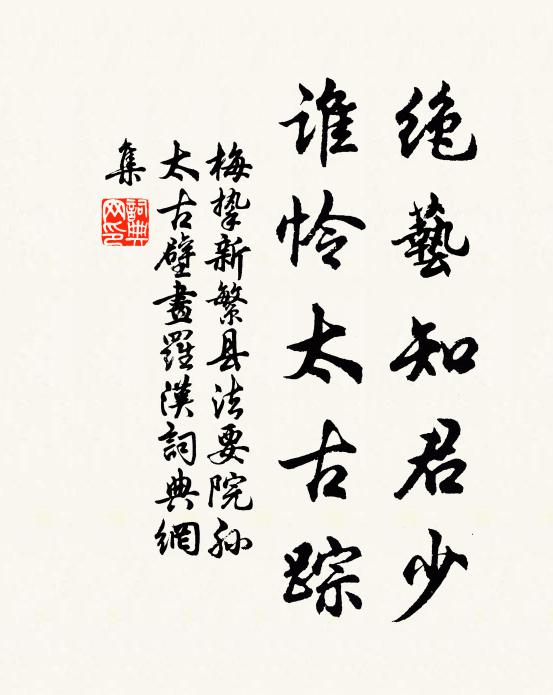 绝藝知君少
谁怜太古踪
梅挚新繁县法要院孙
太古壁畫羅漢詞典網
集
詞典網印